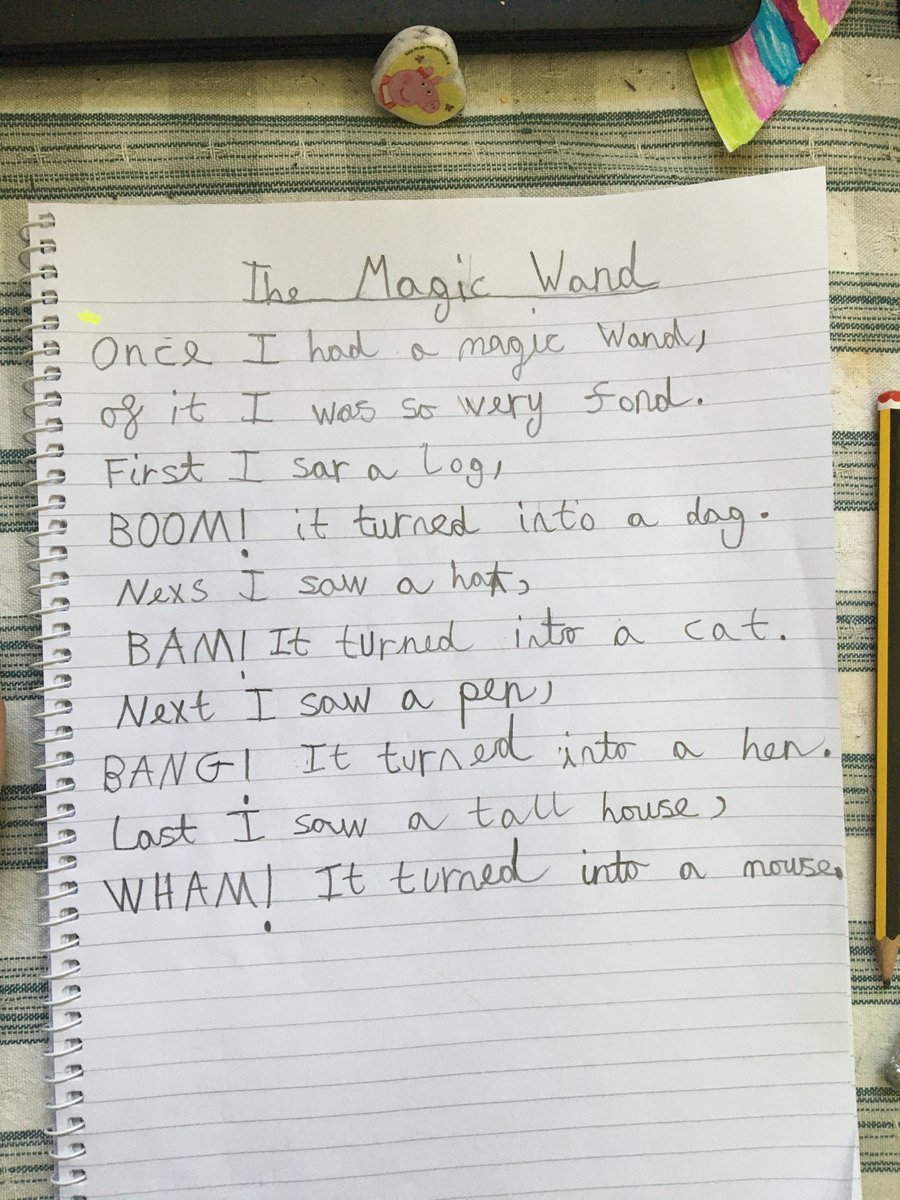 The Magic Wand
Once I had a magic Wand,
of it I was so very fond.
First I sar a log,
BOOM! it turned into a dog.
Nexs I saw a hat,
BAM! It turned into a cat.
Next I saw a pen,
BANG! It turned into a hen.
Last I saw a tall house,
WHAM! It turned into a mouse.